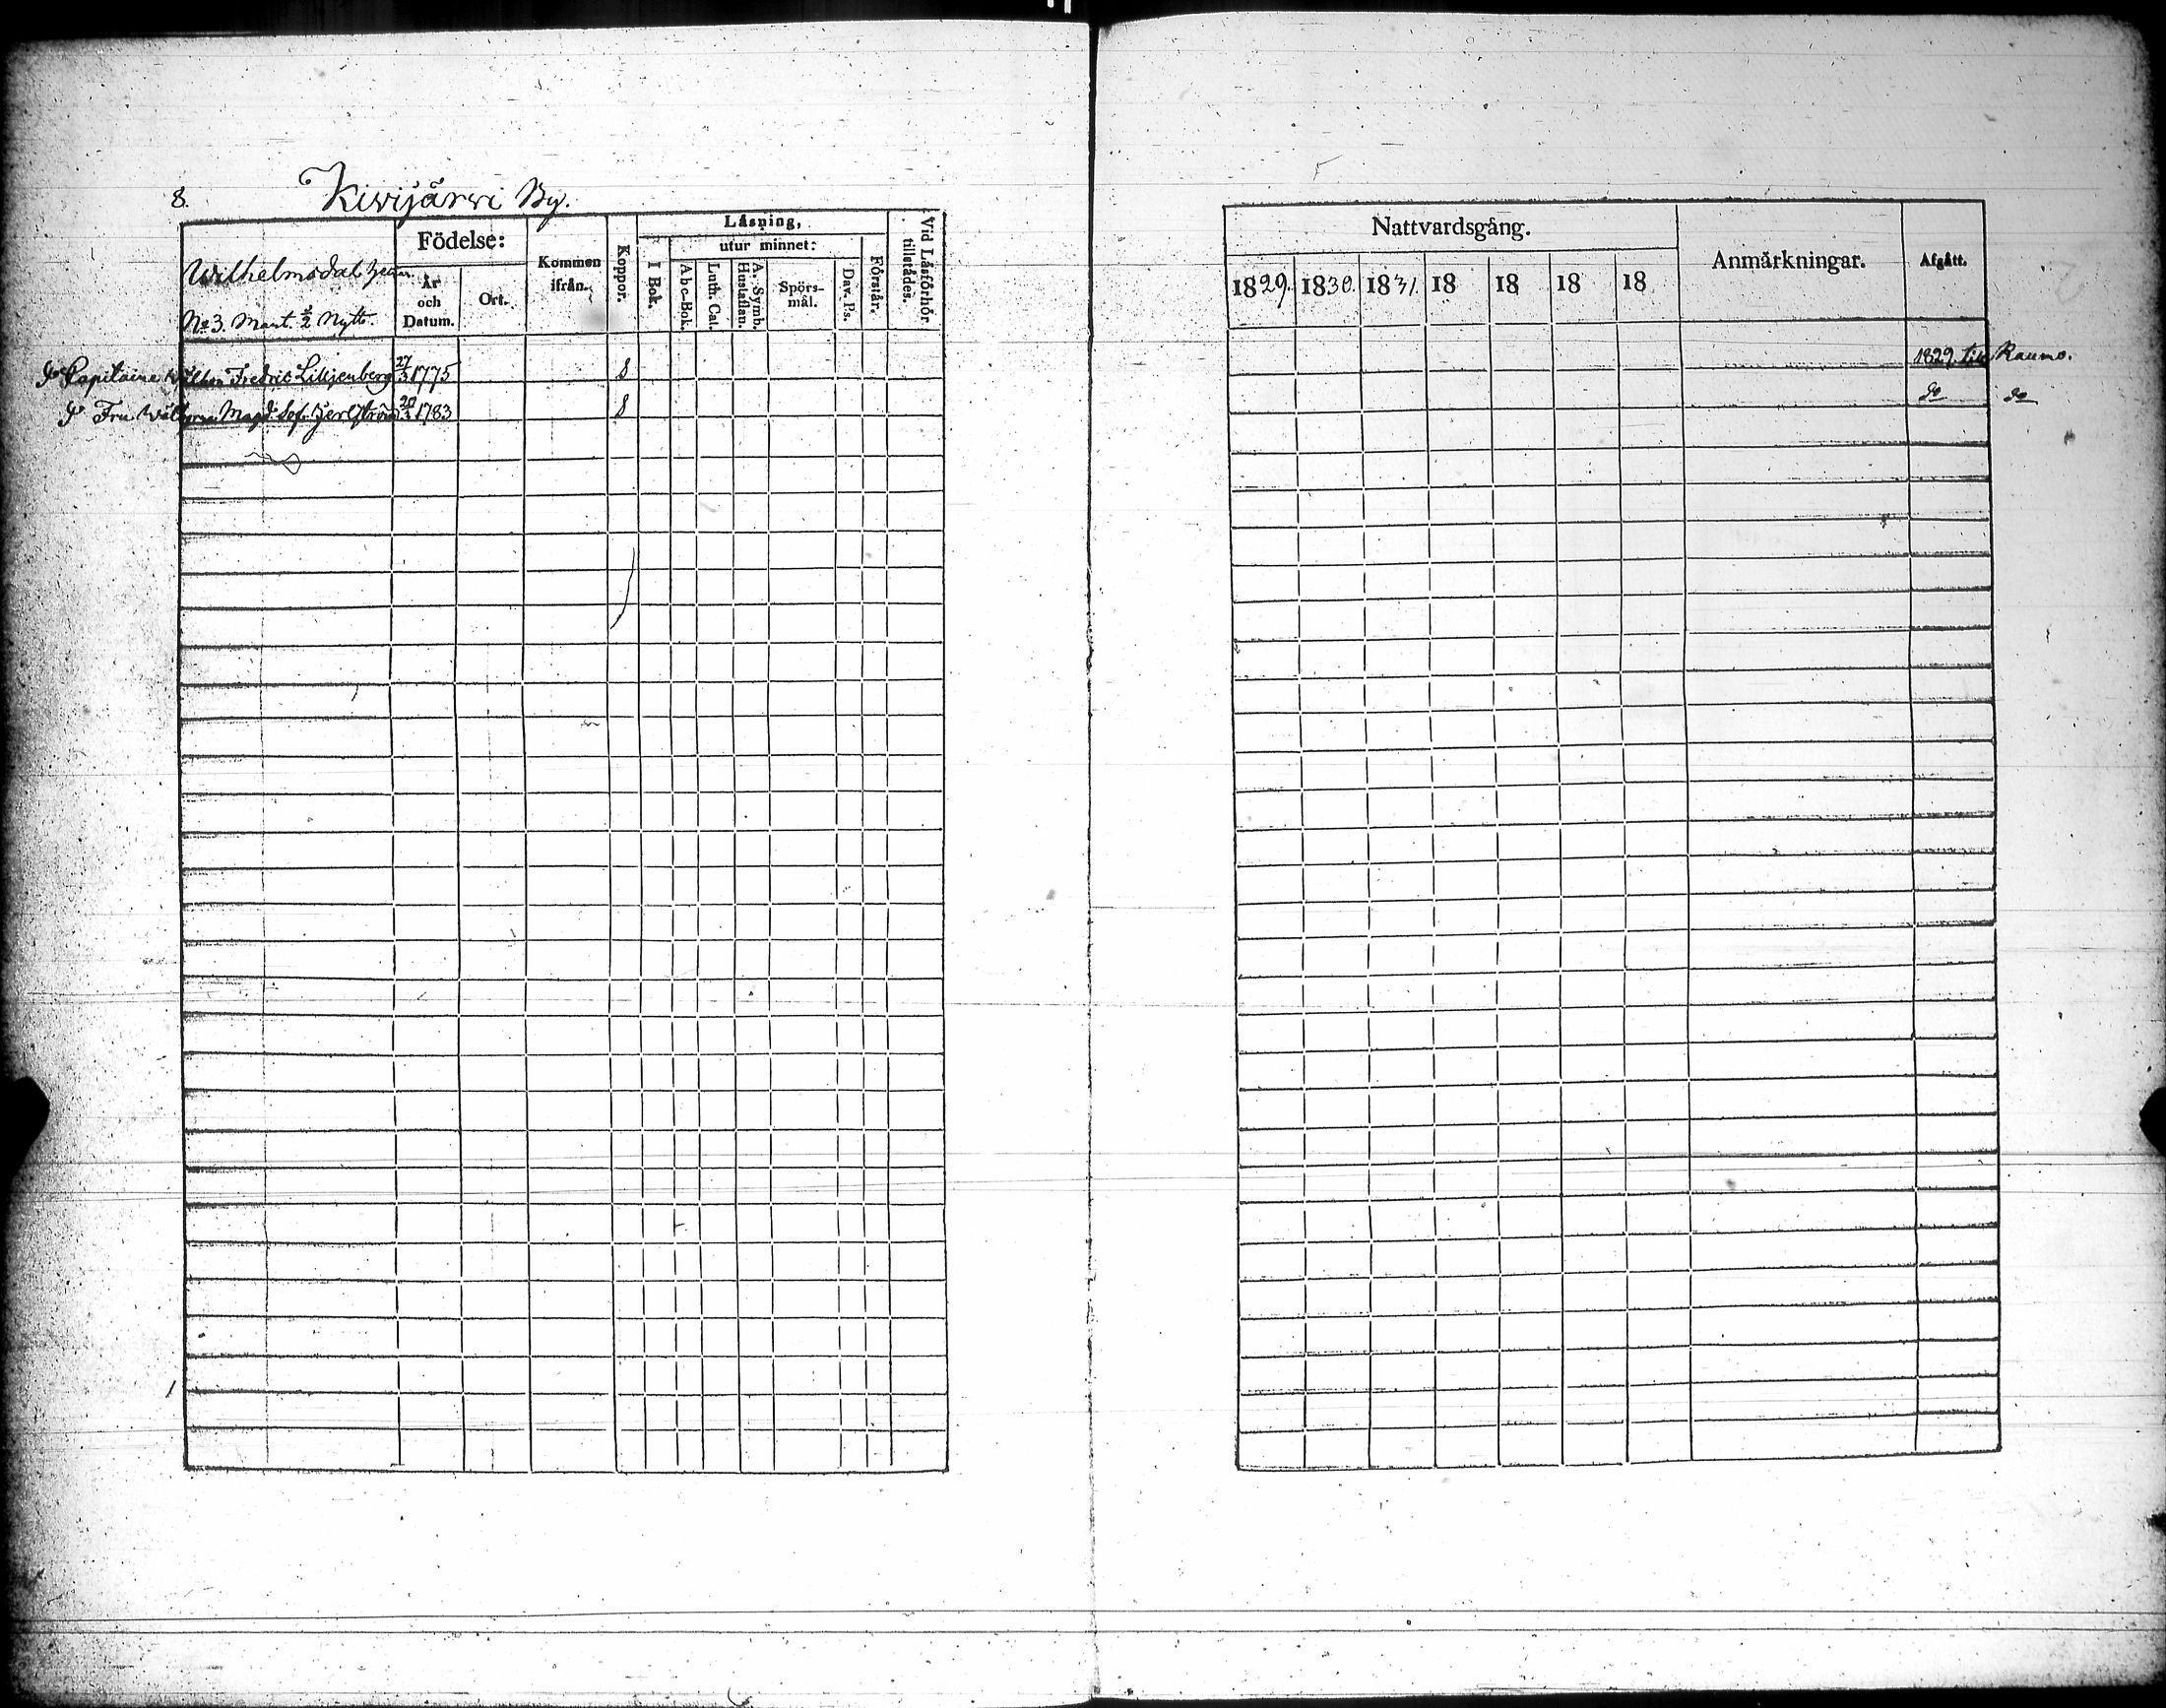 8.
Kivijärvi By.
Wilhelmsdal
No 3. Mant. 1/2 Nytts.
Födelse:
År och Datum.
Ort.
Kommen ifrån.
Koppor.
Läsning,
utur minnet:
I Bok.
Abc-Bok.
Luth. Cat.
A. Symb. Hustaflan.
Spörs-mål.
Dav. Ps.
Förstår.
Vid Läsförhör tillstädes.
Capitaine Wilhem Fredric Liljenberg 27/3 1775
Fru Magd. Sof. 1783
Nattvardsgång.
1829. 1830. 1831. 18 18 18 18
Anmärkningar.
Afgått.
1829. till Raumo.
do do